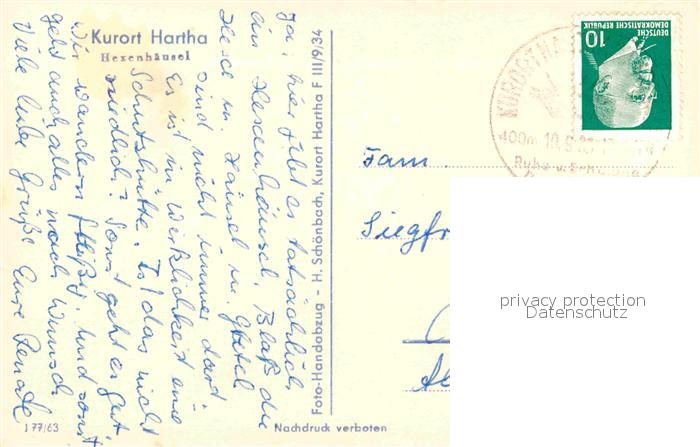 Kurort Hartha
Hexenhäusel
Ja, hier gibt es tatsächlich
ein Hexenhäusel. Bloß die
Hexe m. Hänsel u. Gretel
sind nicht immer dort.
Es ist in Wirklichkeit eine
Schutzhütte. Ist das nicht
niedlich? Sonst geht es gut
Wir wandern fleißig und sonst
geht auch alles nach Wunsch
Viele liebe Grüße Eure Renate
I 77/63
Foto-Handabzug - H. Schönbach, Kurort Hartha F III/9/34
Nachdruck verboten
KURORT HA
400m 10.9.
Ruhe u.
DEUTSCHE
DEMOKRATISCHE REPUBLIK
10
Fam.
Siegfr
privacy protection
Datenschutz